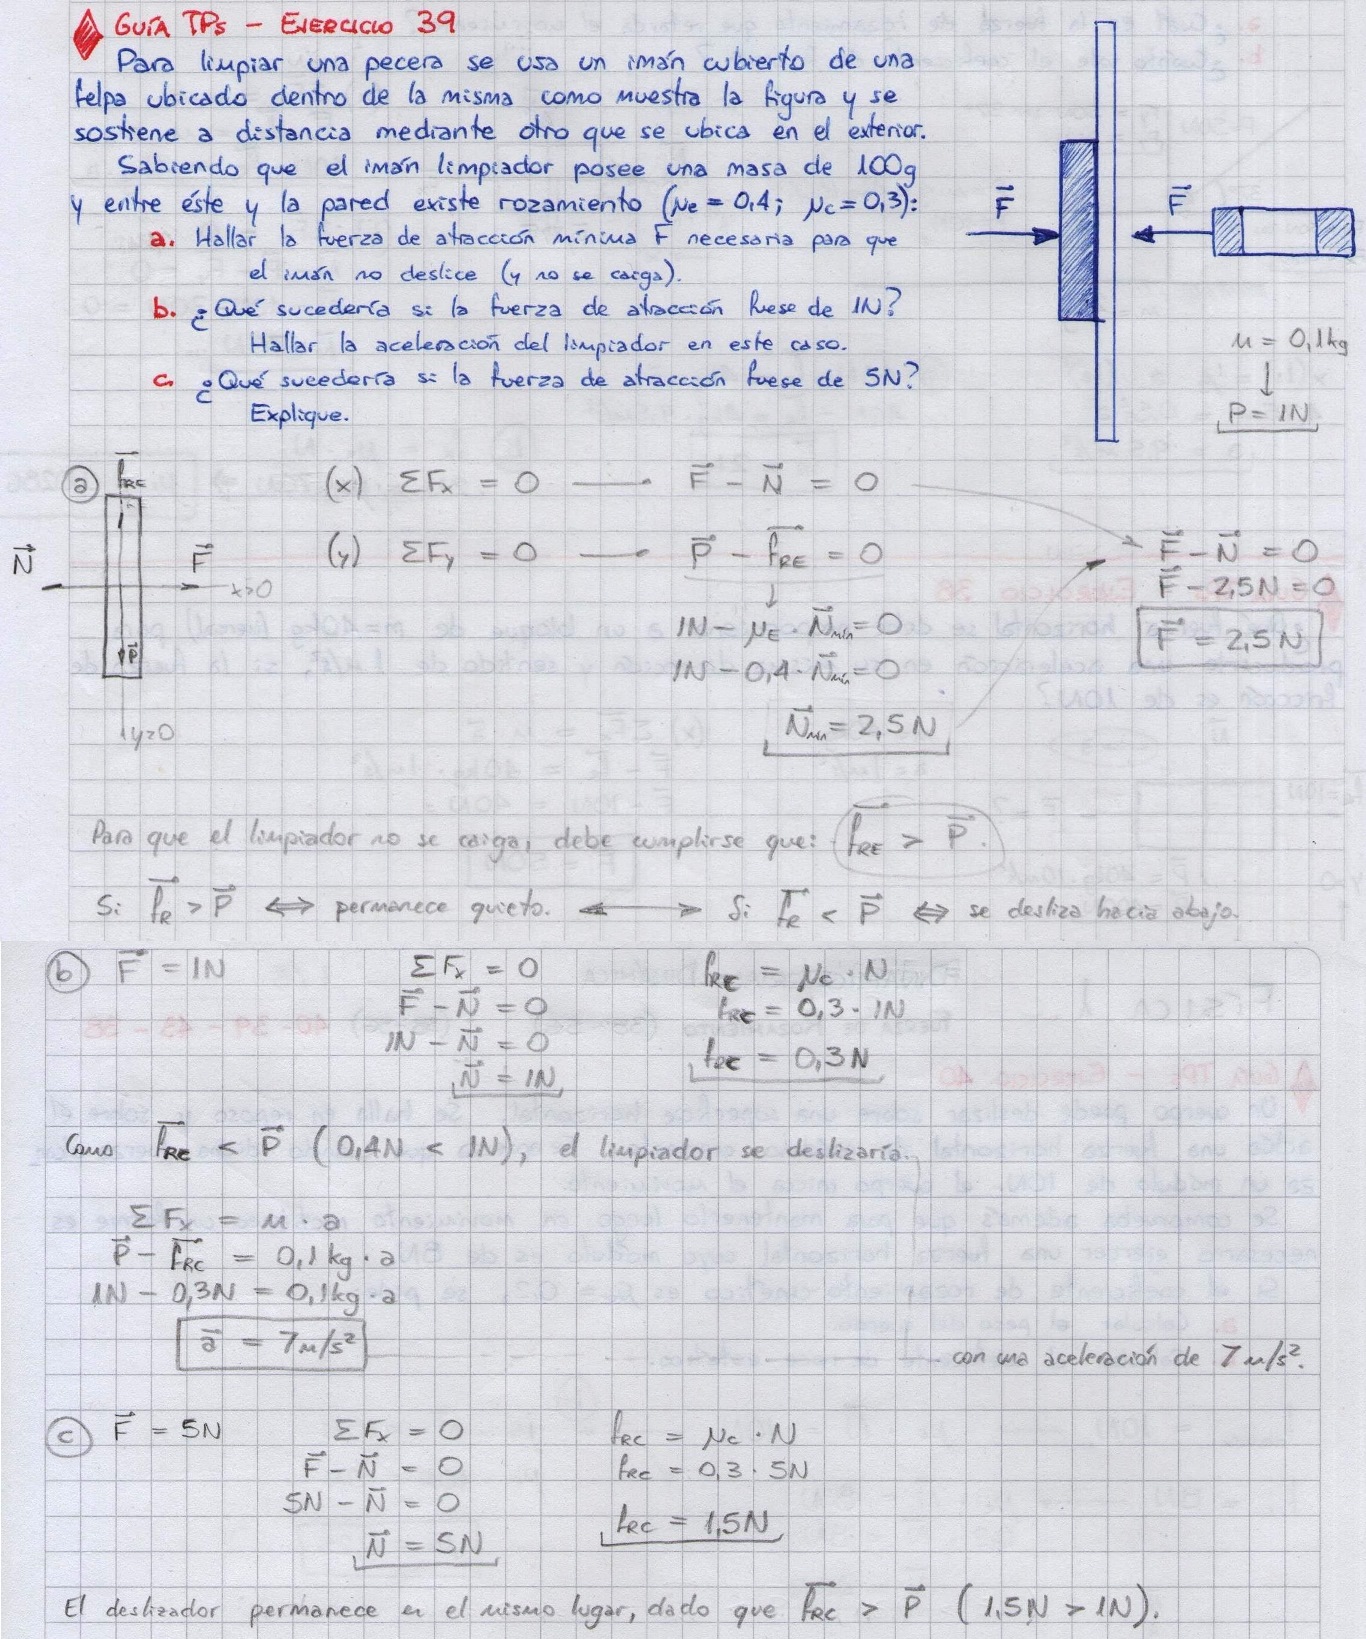 GUÍA TPs - EJERCICIO 39
Para limpiar una pecera se usa un imán cubierto de una
felpa ubicado dentro de la misma como muestra la figura y se
sostiene a distancia mediante otro que se ubica en el exterior.
Sabiendo que el imán limpiador posee una masa de 100g
y entre éste y la pared existe rozamiento (μe = 0,4; μc = 0,3):
a. Hallar la fuerza de atracción mínima F necesaria para que
el imán no deslice (y no se caiga).
b. ¿Qué sucedería si la fuerza de atracción fuese de 1N?
Hallar la aceleración del limpiador en este caso.
c. ¿Qué sucedería si la fuerza de atracción fuese de 5N?
Explique.
F⃗ F⃗
m = 0,1kg
↓
P = 1N
a
fRE
N⃗ F⃗
x>0
P⃗
y>0
(x) ΣFx = 0 —— F⃗ - N⃗ = 0
(y) ΣFy = 0 —— P⃗ - fRE = 0
↓
1N - μE . N⃗mín = 0
1N - 0,4 . N⃗mín = 0
N⃗mín = 2,5N
F⃗ - N⃗ = 0
F⃗ - 2,5N = 0
F⃗ = 2,5N
Para que el limpiador no se caiga, debe cumplirse que: fRE > P⃗.
Si fR > P⃗ ⟺ permanece quieto. ⟷ Si fR < P⃗ ⟺ se desliza hacia abajo.
b F⃗ = 1N
ΣFx = 0
F⃗ - N⃗ = 0
1N - N⃗ = 0
N⃗ = 1N
fRC = μc . N
fRC = 0,3 . 1N
fRC = 0,3N
Como fRC < P⃗ (0,4N < 1N), el limpiador se deslizaría
ΣFx = m . a
P⃗ - fRC = 0,1kg . a
1N - 0,3N = 0,1kg . a
a⃗ = 7m/s²
con una aceleración de 7m/s².
c F⃗ = 5N
ΣFx = 0
F⃗ - N⃗ = 0
5N - N⃗ = 0
N⃗ = 5N
fRC = μc . N
fRC = 0,3 . 5N
fRC = 1,5N
El deslizador permanece en el mismo lugar, dado que fRC > P⃗ (1,5N > 1N).